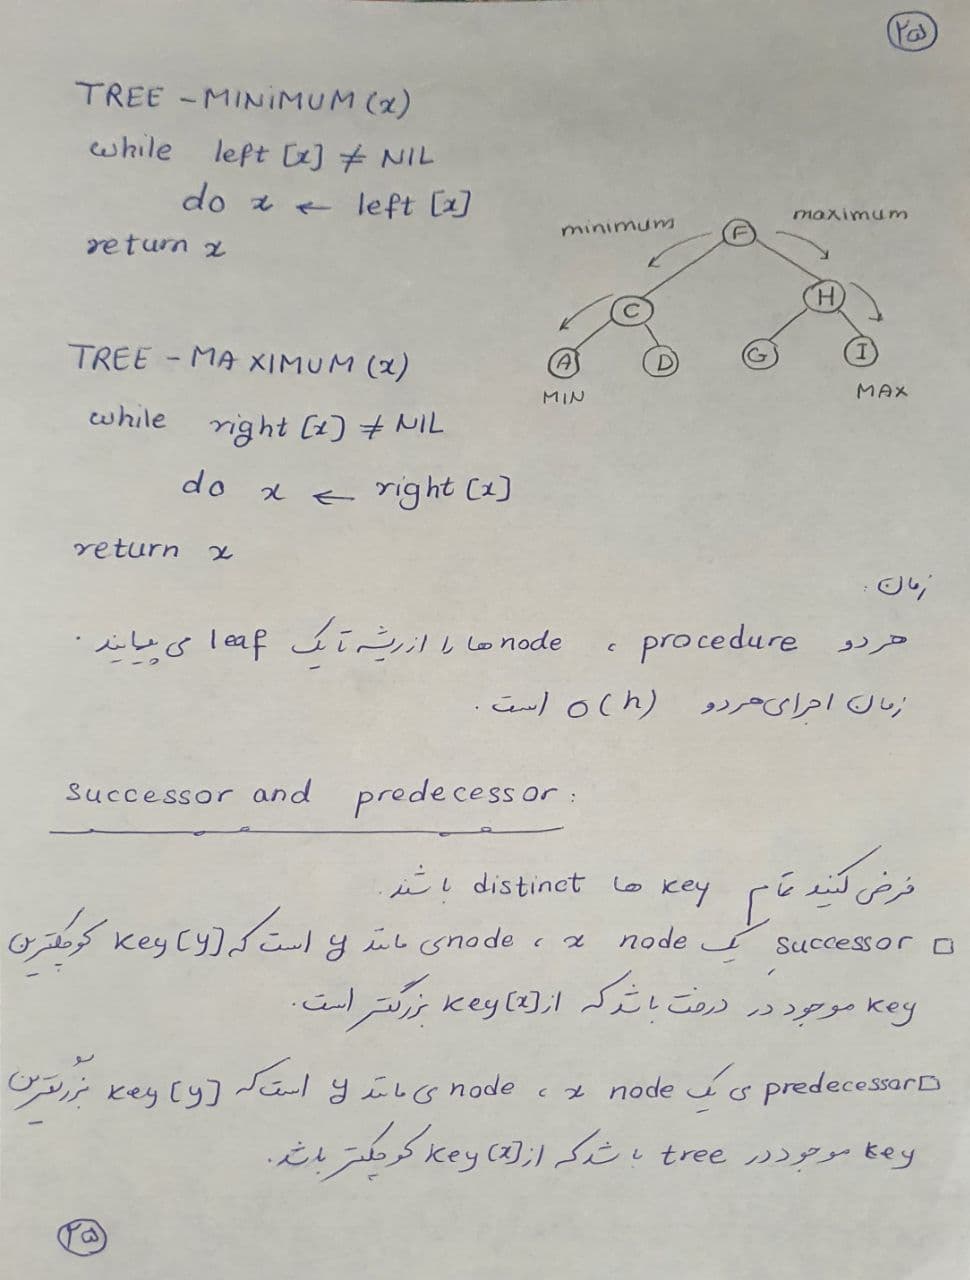 ۲۵
TREE - MINIMUM (x)
while left [x] ≠ NIL
do x ← left [x]
return x
minimum
maximum
F
C
H
A
D
G
I
MIN
MAX
TREE - MAXIMUM (x)
while right [x] ≠ NIL
do x ← right [x]
return x
زمان :
هر دو procedure ، node ها را از ریشه تا یک leaf می پیمایند .
زمان اجرای هر دو O(h) است .
Successor and predecessor :
فرض کنید تمام key ها distinct باشند .
□ successor یک node x ، node ی مانند y است که key [y] کوچکترین
key موجود در درخت باشد که از key [x] بزرگتر است .
□ predecessor ی یک node x ، node ی مانند y است که key [y] بزرگترین
key موجود در tree باشد که از key [x] کوچکتر باشد .
۲۵